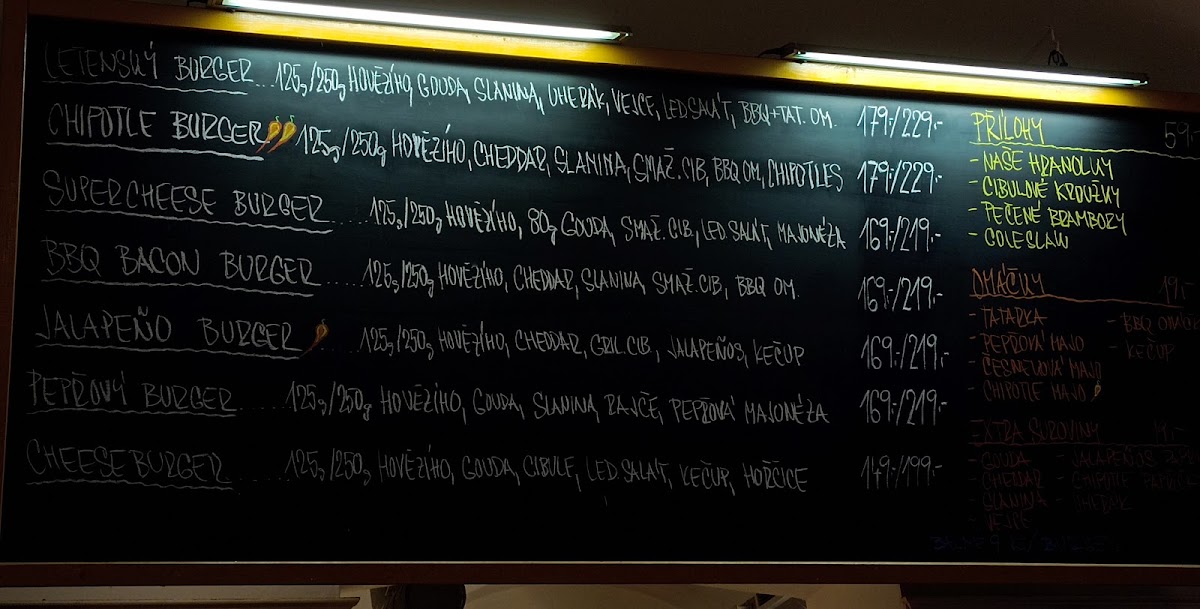 LETENSKÝ BURGER...125g/250g HOVĚZÍHO, GOUDA, SLANINA, UHERÁK, VEJCE, LED.SALÁT, BBQ+TAT. OM. 179,-/229,-
CHIPOTLE BURGER 125g/250g HOVĚZÍHO, CHEDDAR, SLANINA, SMAŽ.CIB, BBQ OM, CHIPOTLES 179,-/229,-
SUPERCHEESE BURGER.....125g/250g HOVĚZÍHO, 80g GOUDA, SMAŽ.CIB, LED.SALÁT, MAJONÉZA 169,-/219,-
BBQ BACON BURGER.....125g/250g HOVĚZÍHO, CHEDDAR, SLANINA, SMAŽ.CIB, BBQ OM. 169,-/219,-
JALAPEÑO BURGER.....125g/250g HOVĚZÍHO, CHEDDAR, GRIL.CIB., JALAPEÑOS, KEČUP 169,-/219,-
PEPŘOVÝ BURGER.....125g/250g HOVĚZÍHO, GOUDA, SLANINA, RAJČE, PEPŘOVÁ MAJONÉZA 169,-/219,-
CHEESEBURGER.....125g/250g HOVĚZÍHO, GOUDA, CIBULE, LED.SALÁT, KEČUP, HOŘČICE 149,-/199,-
PŘÍLOHY 59,-
- NAŠE HRANOLKY
- CIBULOVÉ KROUŽKY
- PEČENÉ BRAMBORY
- COLESLAW
OMÁČKY 19,-
- TATARKA
- PEPŘOVÁ MAJO
- ČESNEKOVÁ MAJO
- CHIPOTLE MAJO
- BBQ OMÁČ
- KEČUP
EXTRA SUROVINY 19,-
- GOUDA
- CHEDDAR
- SLANINA
- VEJCE
- JALAPEÑOS
- CHIPOTLE
- UHERÁK